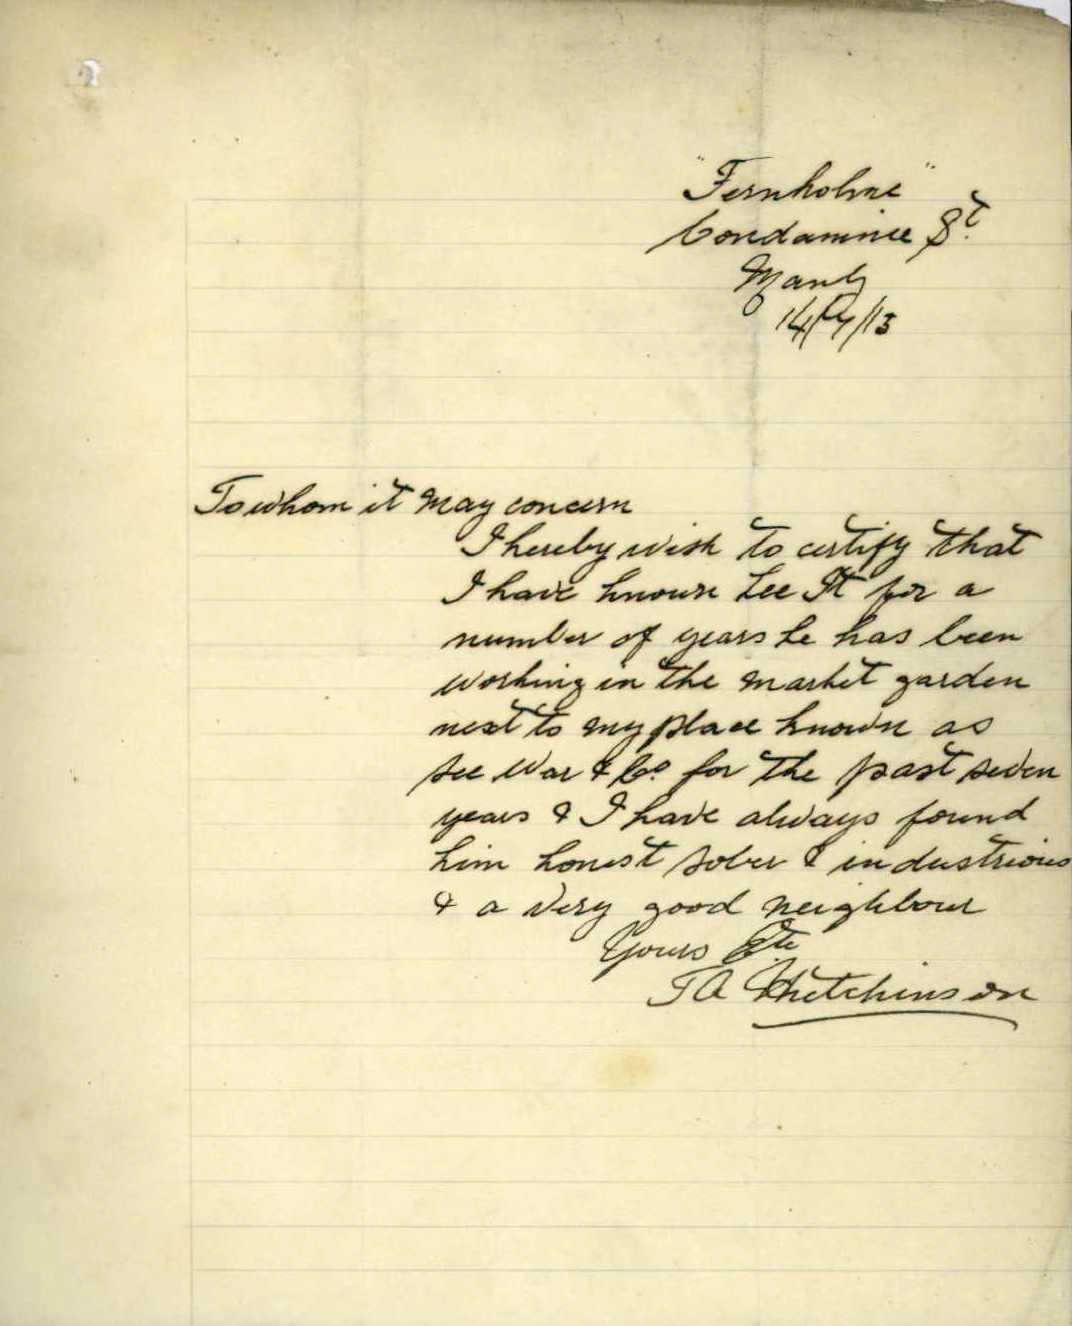 "Fernholme"
Condamine St.
Manly
14/7/13
To whom it may concern
I hereby wish to certify that
I have known Lee It for a
number of years he has been
working in the market garden
next to my place known as
See War & Co. for the past seven
years & I have always found
him honest sober & industrious
& a very good neighbour
Yours Etc
J A Hutchinson